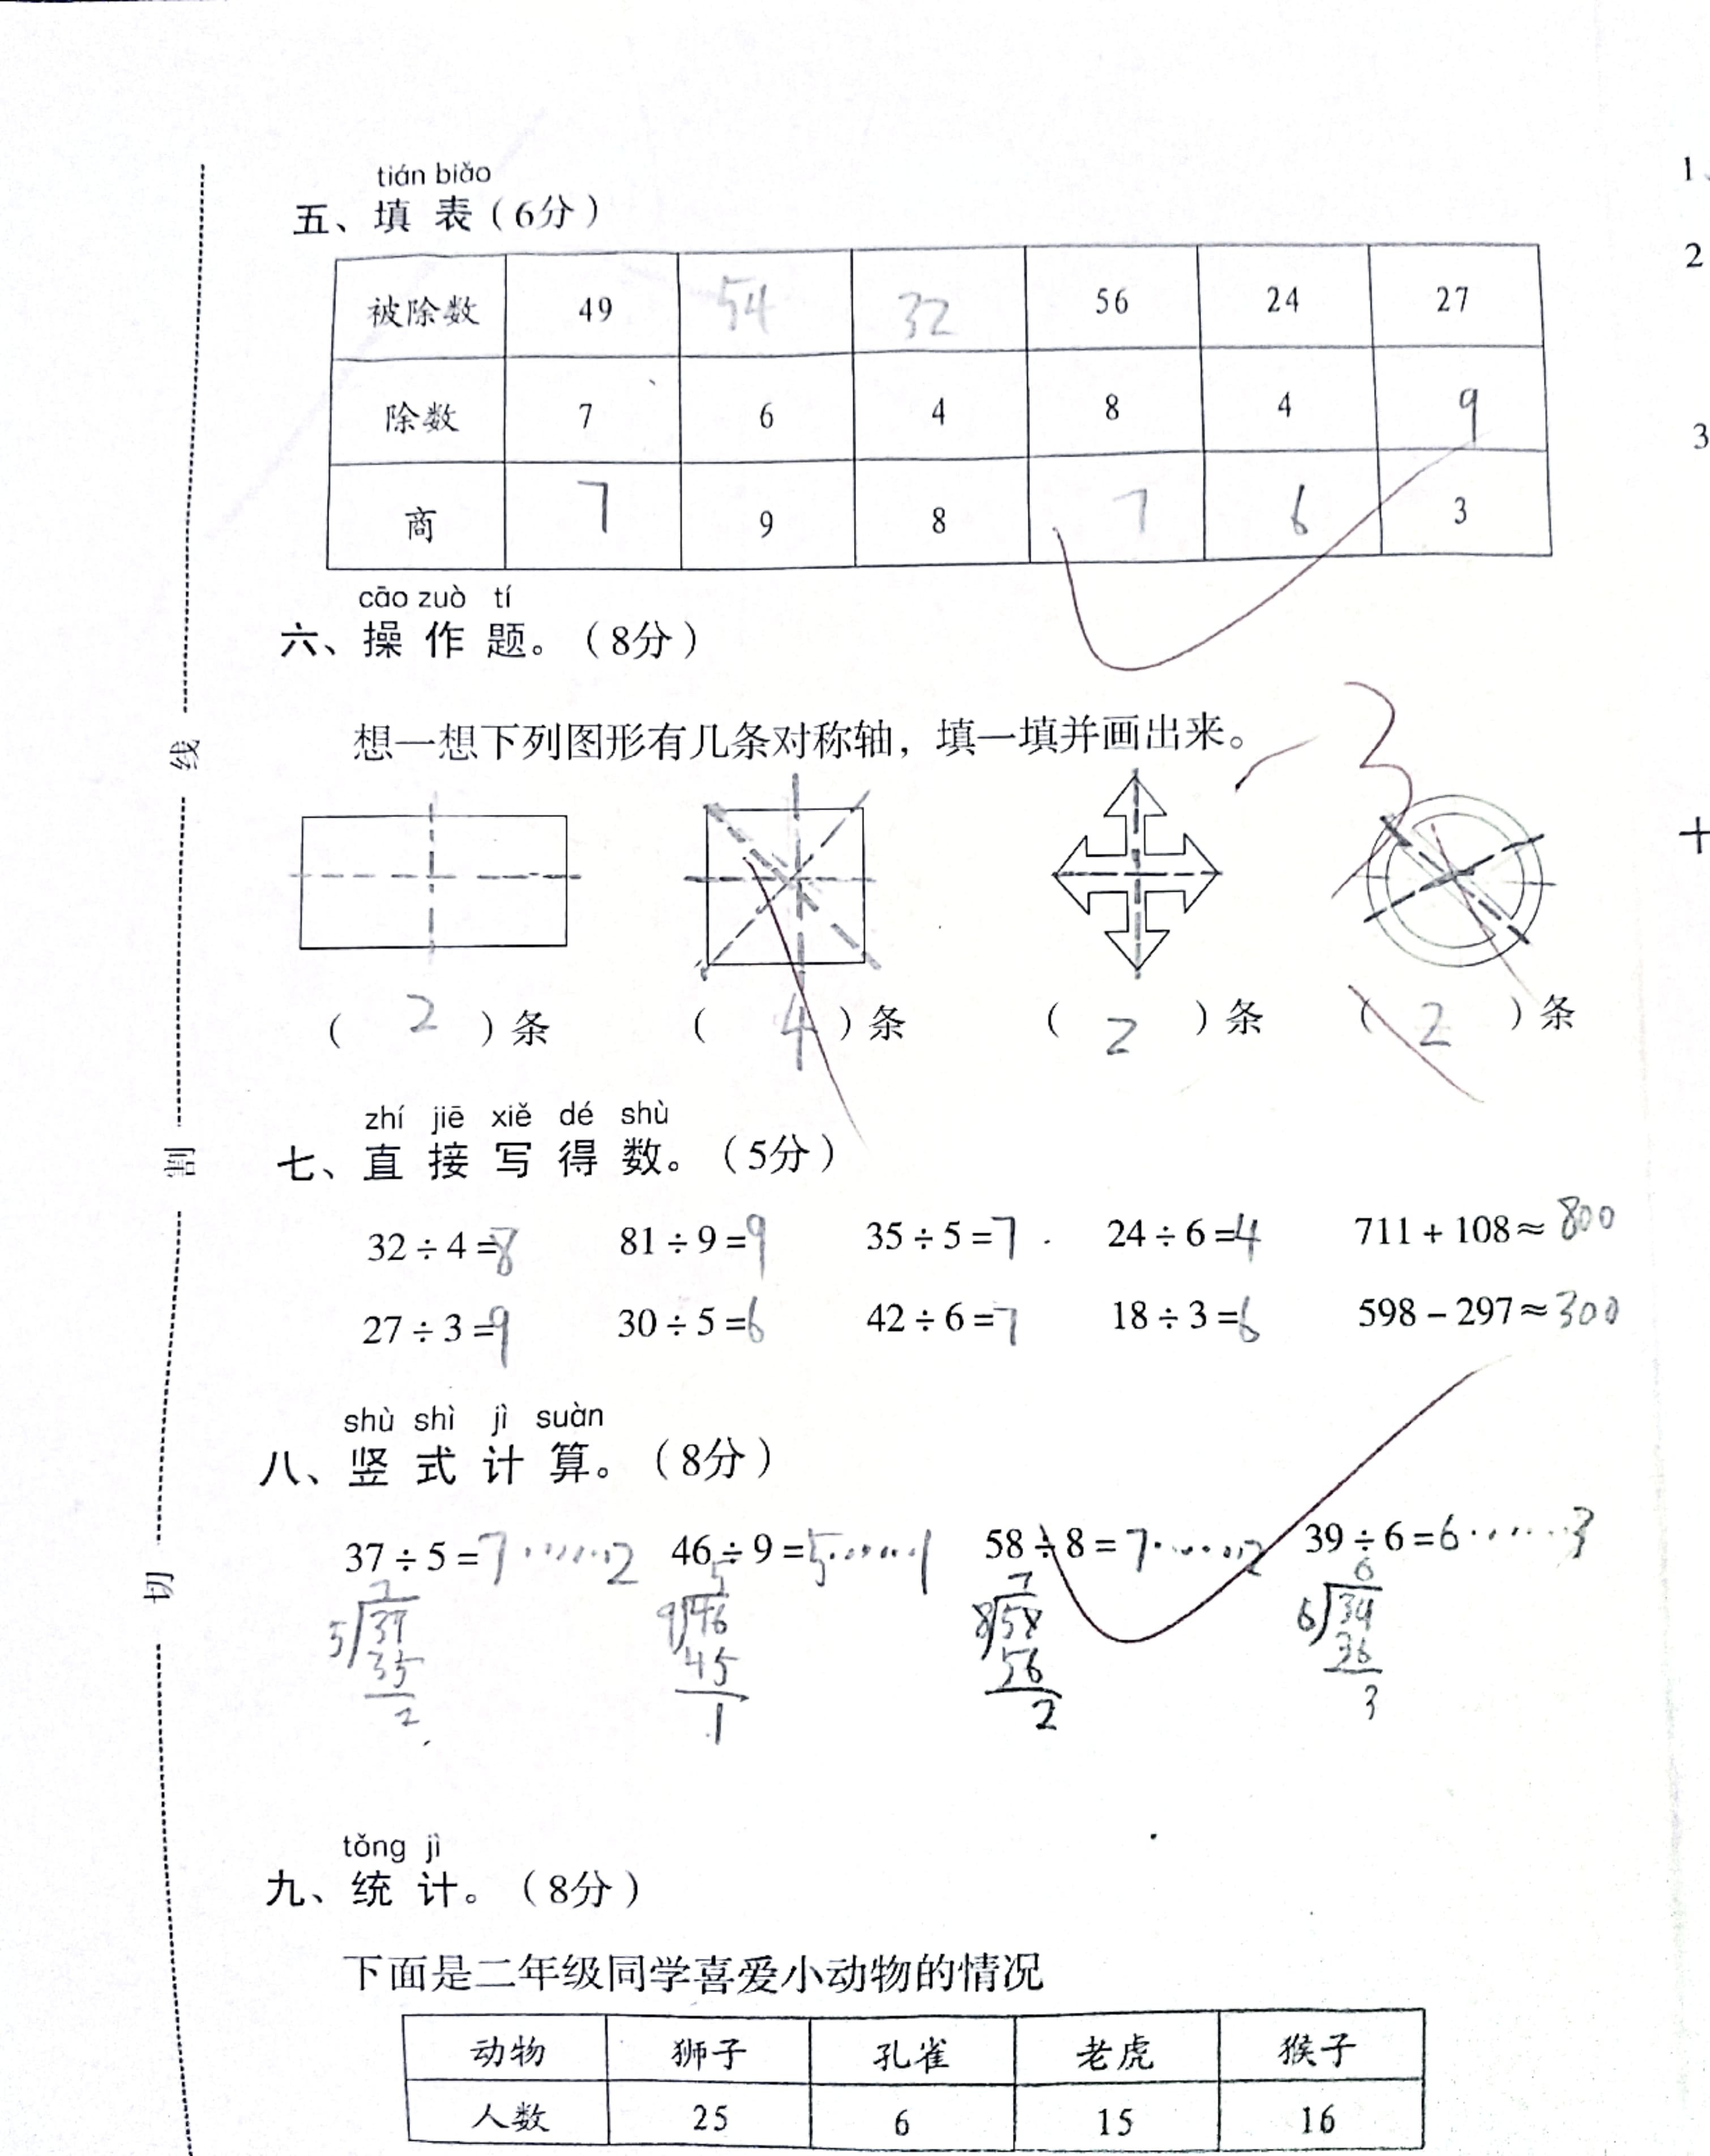 tián biǎo
五、填 表（6分）
被除数 49 54 32 56 24 27
除数 7 6 4 8 4 9
商 7 9 8 7 6 3
cāo zuò tí
六、操 作 题。（8分）
想一想下列图形有几条对称轴，填一填并画出来。
-3
（ 2 ）条 （ 4 ）条 （ 2 ）条 （ 2 ）条
zhí jiē xiě dé shù
七、直 接 写 得 数。（5分）
32÷4=8 81÷9=9 35÷5=7 24÷6=4 711+108≈800
27÷3=9 30÷5=6 42÷6=7 18÷3=6 598-297≈300
shù shì jì suàn
八、竖 式 计 算。（8分）
37÷5=7······2 46÷9=5······1 58÷8=7······2 39÷6=6······3
7 5 7 6
5 37 9 46 8 58 6 39
35 45 56 36
2 1 2 3
tǒng jì
九、统 计。（8分）
下面是二年级同学喜爱小动物的情况
动物 狮子 孔雀 老虎 猴子
人数 25 6 15 16
线
割
切
1、
2
3
十